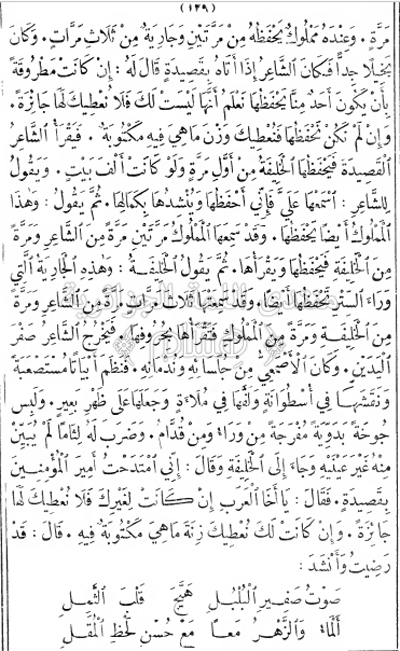 (١٢٩)
مَرَّةٍ . وَعِنْدَهُ مَمْلُوكٌ يَحْفَظُهُ مِنْ مَرَّتَيْنِ وَجَارِيَةٌ مِنْ ثَلَاثِ مَرَّاتٍ . وَكَانَ
بَخِيلًا جِدًّا فَكَانَ الشَّاعِرُ إِذَا أَتَاهُ بِقَصِيدَةٍ قَالَ لَهُ : إِنْ كَانَتْ مَطْرُوقَةً
بِأَنْ يَكُونَ أَحَدٌ مِنَّا يَحْفَظُهَا نَعْلَمُ أَنَّهَا لَيْسَتْ لَكَ فَلَا نُعْطِيكَ لَهَا جَائِزَةً .
وَإِنْ لَمْ نَكُنْ نَحْفَظُهَا فَنُعْطِيكَ وَزْنَ مَا هِيَ فِيهِ مَكْتُوبَةٌ . فَيَقْرَأُ الشَّاعِرُ
الْقَصِيدَةَ فَيَحْفَظُهَا الْخَلِيفَةُ مِنْ أَوَّلِ مَرَّةٍ وَلَوْ كَانَتْ أَلْفَ بَيْتٍ . وَيَقُولُ
لِلشَّاعِرِ : اسْمَعْهَا عَلَيَّ فَإِنِّي أَحْفَظُهَا وَيُنْشِدُهَا بِكَمَالِهَا . ثُمَّ يَقُولُ : وَهٰذَا
الْمَمْلُوكُ أَيْضًا يَحْفَظُهَا . وَقَدْ سَمِعَهَا الْمَمْلُوكُ مَرَّتَيْنِ مَرَّةً مِنَ الشَّاعِرِ وَمَرَّةً
مِنَ الْخَلِيفَةِ فَيَحْفَظُهَا وَيَقْرَأُهَا . ثُمَّ يَقُولُ الْخَلِيفَةُ : وَهٰذِهِ الْجَارِيَةُ الَّتِي
وَرَاءَ السِّتْرِ تَحْفَظُهَا أَيْضًا . وَقَدْ سَمِعَتْهَا ثَلَاثَ مَرَّاتٍ مَرَّةً مِنَ الشَّاعِرِ وَمَرَّةً
مِنَ الْخَلِيفَةِ وَمَرَّةً مِنَ الْمَمْلُوكِ فَتَقْرَأُهَا بِحُرُوفِهَا . فَيَخْرُجُ الشَّاعِرُ صِفْرَ
الْيَدَيْنِ . وَكَانَ الْأَصْمَعِيُّ مِنْ جُلَسَائِهِ وَنُدَمَائِهِ . فَنَظَمَ أَبْيَاتًا مُسْتَصْعَبَةً
وَنَقَشَهَا فِي أُسْطُوَانَةٍ وَلَفَّهَا فِي مُلَاءَةٍ وَجَعَلَهَا عَلَى ظَهْرِ بَعِيرٍ . وَلَبِسَ
جُوخَةً بَدَوِيَّةً مُفَرَّجَةً مِنْ وَرَاءُ وَمِنْ قُدَّامُ . وَضَرَبَ لَهُ لِثَامًا لَمْ يُبَيِّنْ
مِنْهُ غَيْرَ عَيْنَيْهِ وَجَاءَ إِلَى الْخَلِيفَةِ وَقَالَ : إِنِّي امْتَدَحْتُ أَمِيرَ الْمُؤْمِنِينَ
بِقَصِيدَةٍ . فَقَالَ : يَا أَخَا الْعَرَبِ إِنْ كَانَتْ لِغَيْرِكَ فَلَا نُعْطِيكَ لَهَا
جَائِزَةً . وَإِنْ كَانَتْ لَكَ نُعْطِيكَ زِنَةَ مَا هِيَ مَكْتُوبَةٌ فِيهِ . قَالَ : قَدْ
رَضِيتُ وَأَنْشَدَ :
صَوْتُ صَفِيرِ الْبُلْبُلِ هَيَّجَ قَلْبَ الثَّمِلِ
أَلْمَاءُ وَالزَّهْرُ مَعًا مَعْ حُسْنِ لَحْظِ الْمُقَلِ